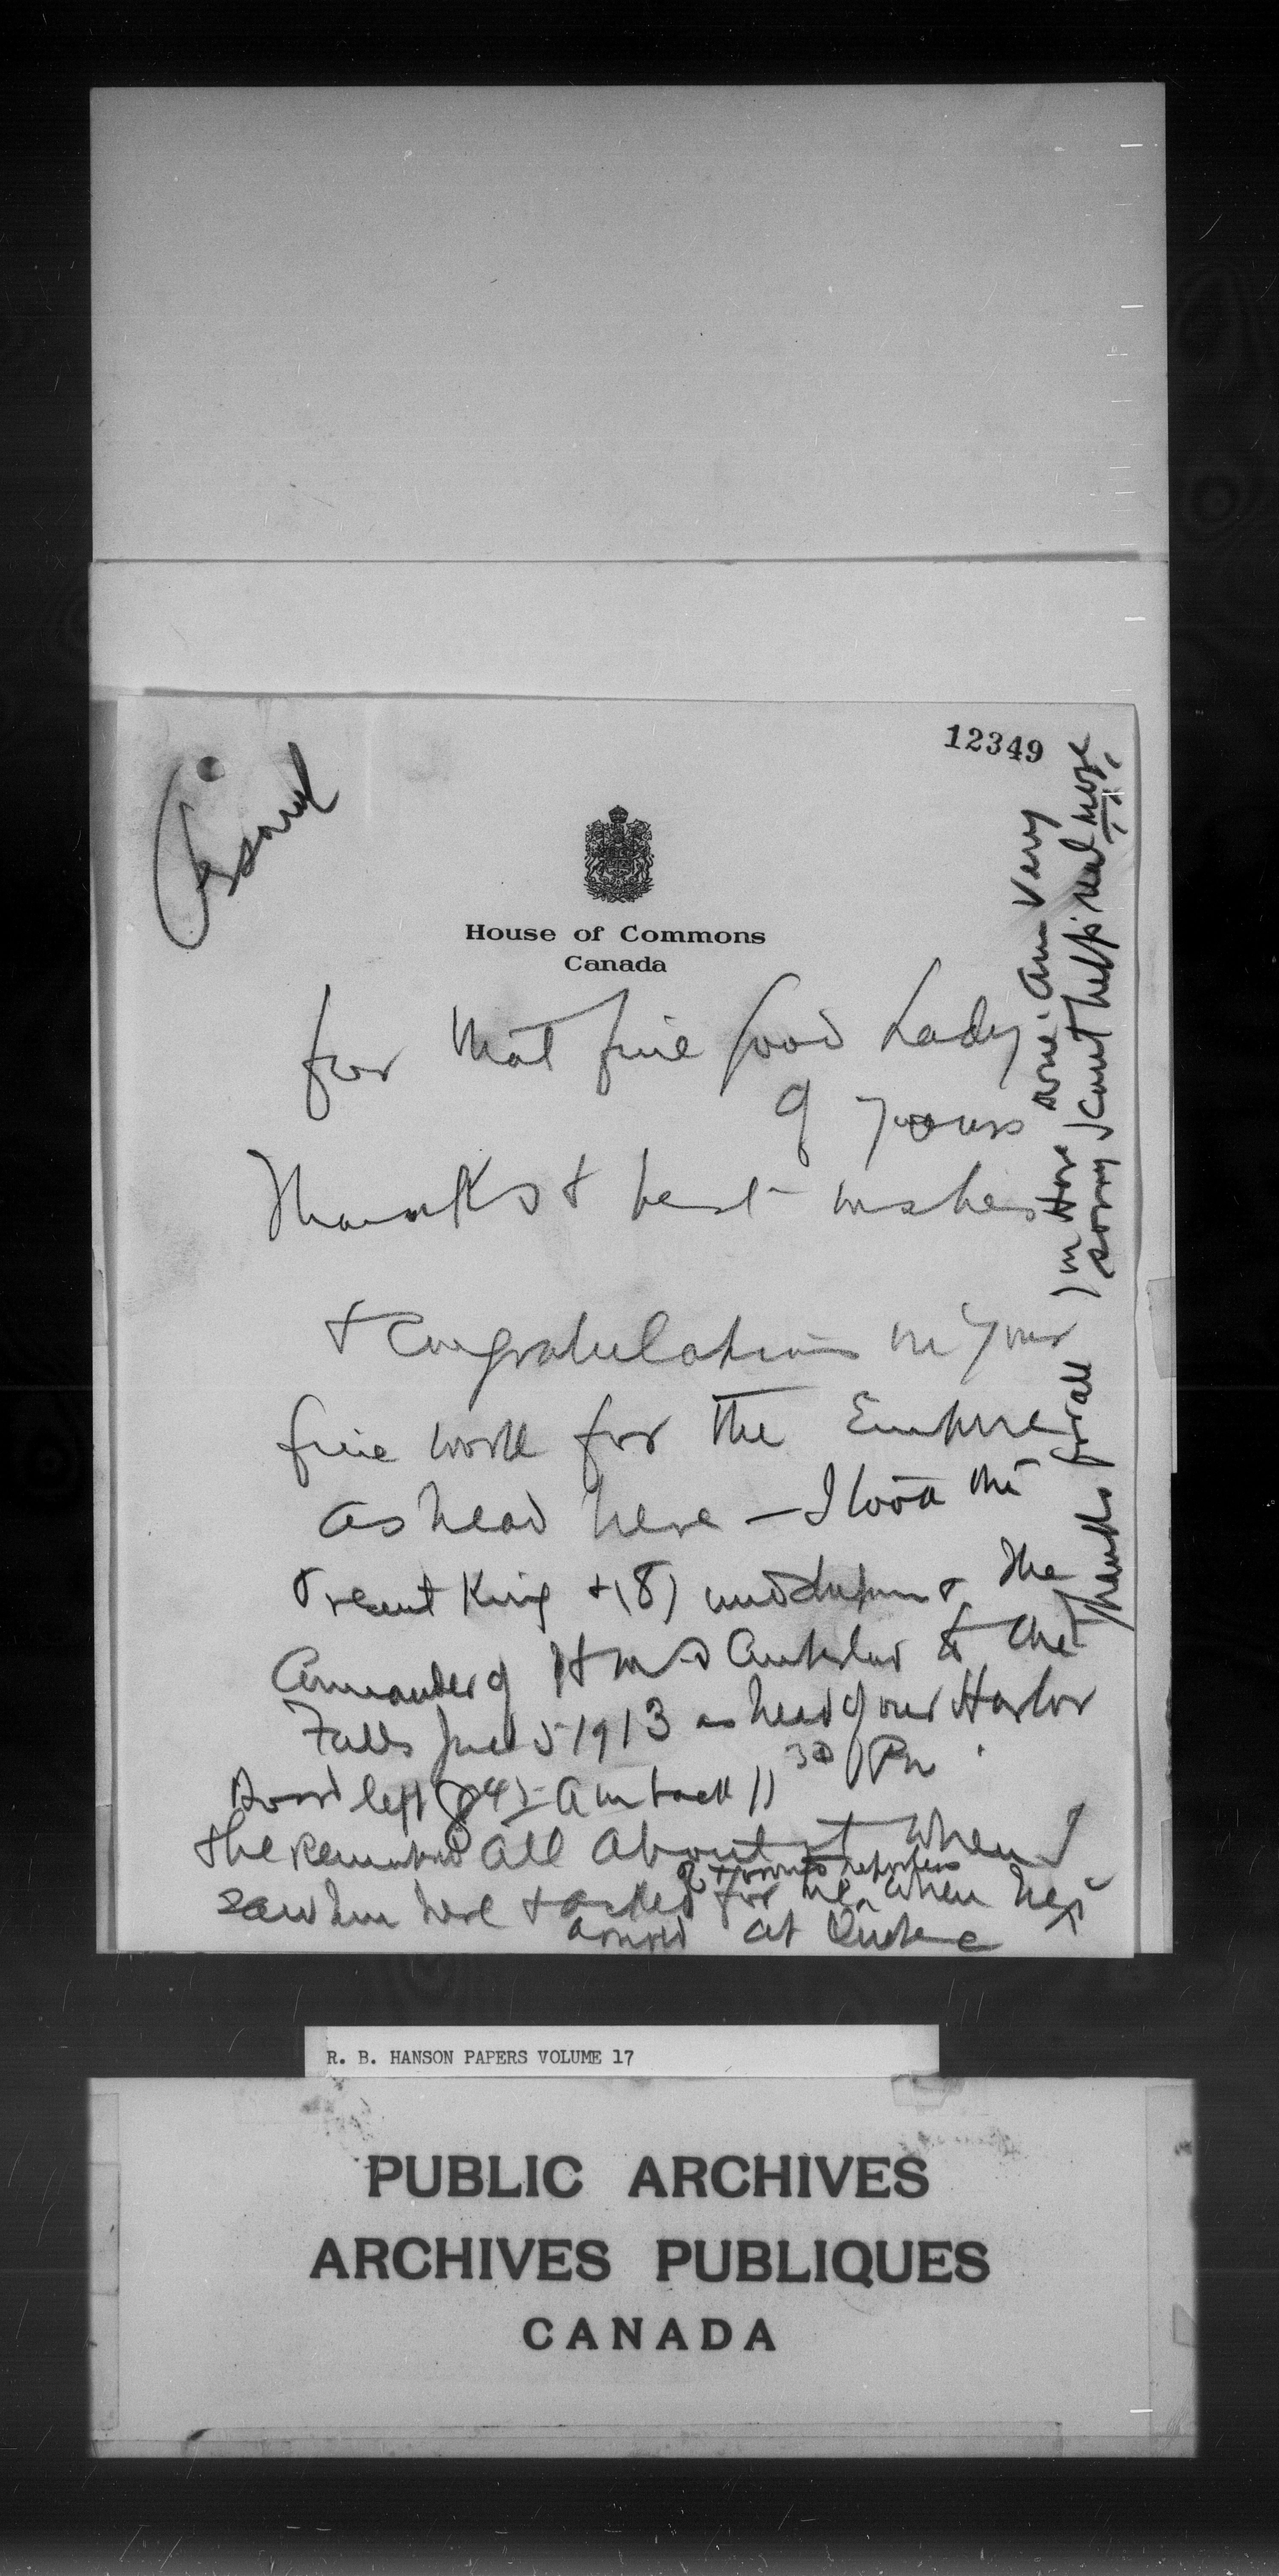 12349
House of Commons
Canada
for that fine good Lady
of yours
Thanks & best wishes
& Congratulations on your
fine work for the Empire
as head here — I took the
present King & (8) midshipmen & the
Commander of HMS Cumberland to the
Falls June 5 1913 as head of our Harbor
Board left 8 45 Am back 11 30 Pm
& he remembered all about it when I
of Toronto reporters
saw him here & asked for me when he
arrived at Quebec
Thanks for all
you have done. Am very
sorry I cant help real more
R. B. HANSON PAPERS VOLUME 17
PUBLIC ARCHIVES
ARCHIVES PUBLIQUES
CANADA